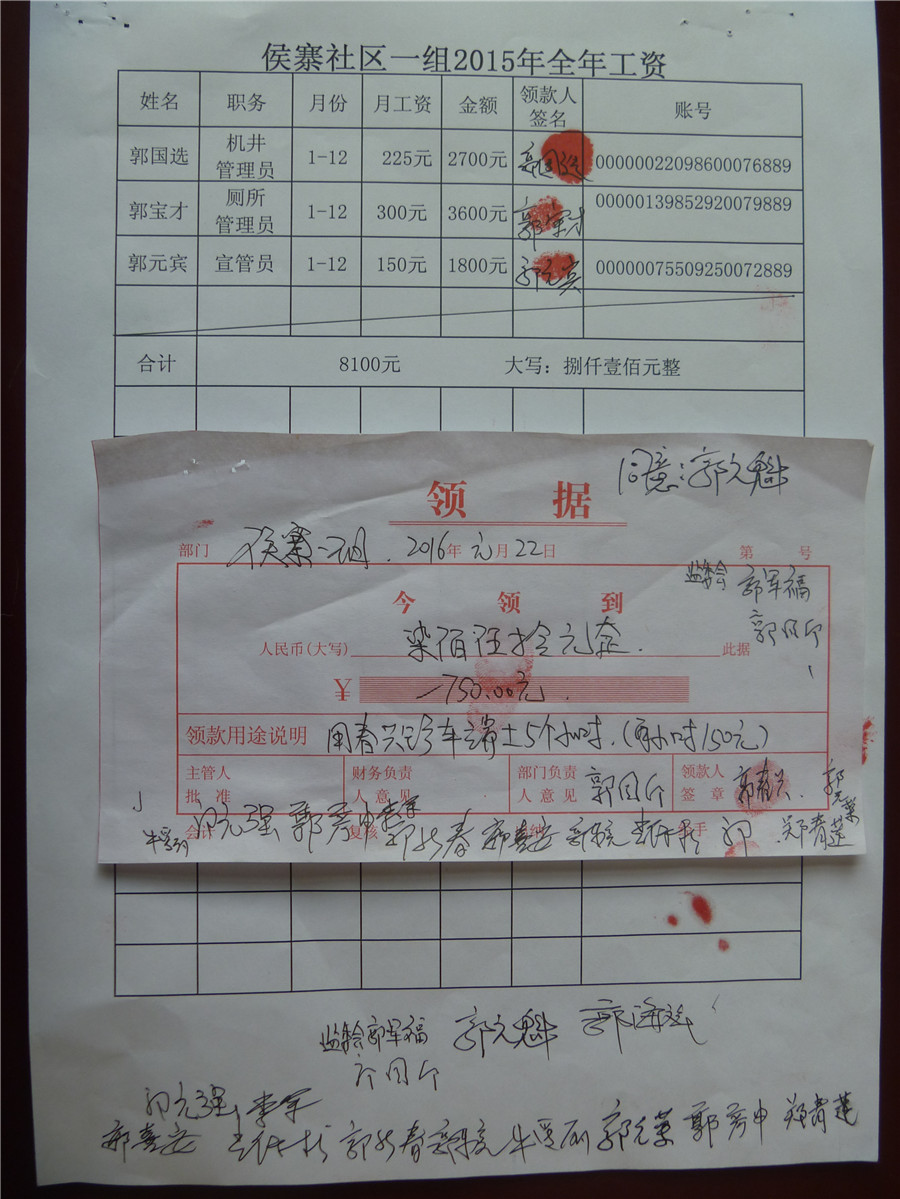 侯寨社区一组2015年全年工资
姓名 职务 月份 月工资 金额 领款人签名 账号
郭国选 机井管理员 1-12 225元 2700元 郭国选 00000022098600076889
郭宝才 厕所管理员 1-12 300元 3600元 郭宝才 00000139852920079889
郭元宾 宣管员 1-12 150元 1800元 郭元宾 00000075509250072889
合计 8100元 大写：捌仟壹佰元整
同意：郭元魁
领 据
部门 侯寨一组 2016年元月22日 第 号
监委会 郭军福
今 领 到
人民币(大写) 柒佰伍拾元整 此据
¥ 750.00元
领款用途说明 用春兴铲车清土5个小时.(每小时150元)
主管人批准 财务负责人意见 部门负责人意见 领款人签章 郭春兴
会计 郭元强 郭彦申 复核 李军 郭长春 郭喜安 郑青莲
监委会 郭军福 郭元魁
郭元强 李军
郭喜安 郭长春 郭元荣 郭彦申 郑青莲